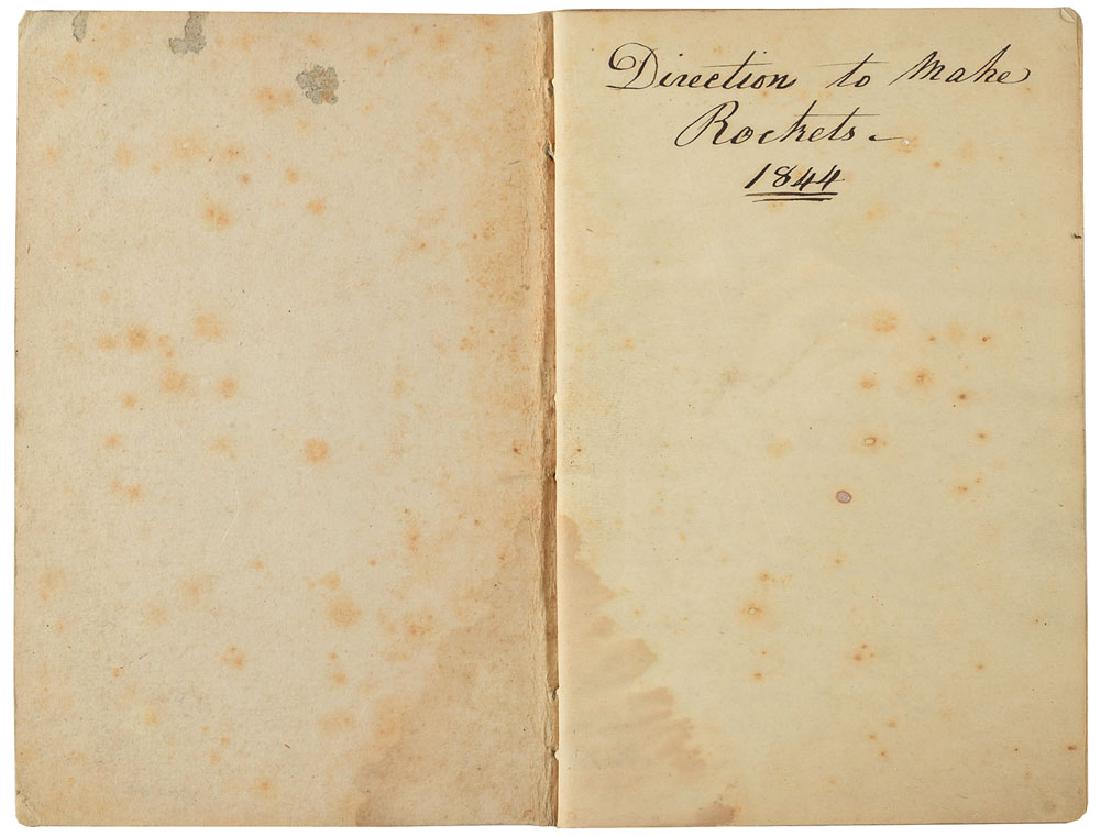 Direction to Make
Rockets -
1844